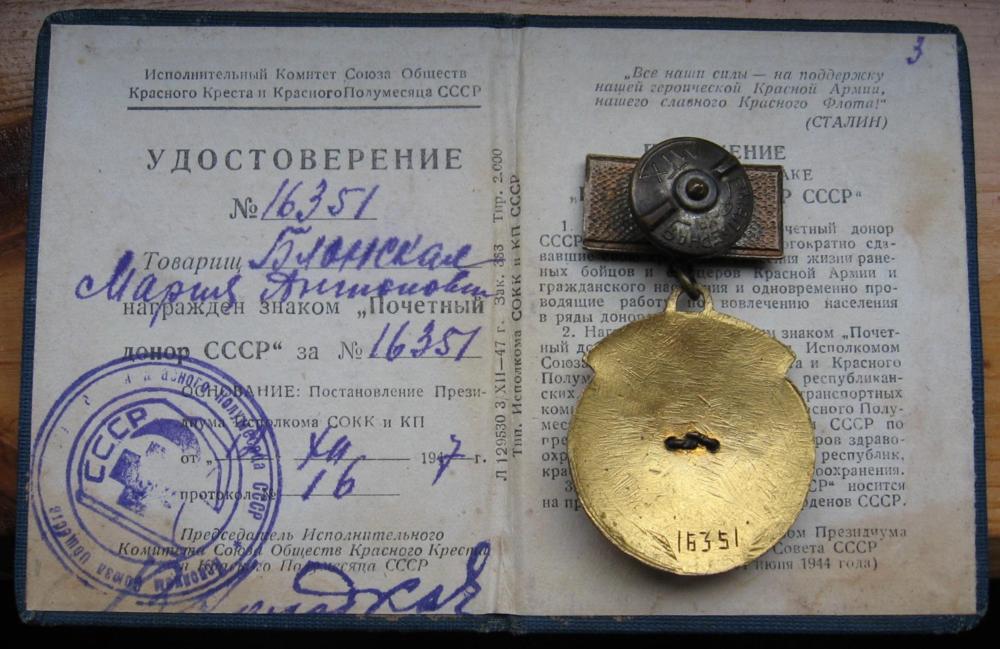 Исполнительный Комитет Союза Обществ
Красного Креста и Красного Полумесяца СССР
УДОСТОВЕРЕНИЕ
№ 16351
Товарищ Блонская
Мария Антоновна
награжден знаком „Почетный
донор СССР“ за № 16351
ОСНОВАНИЕ: Постановление Прези-
диума Исполкома СОКК и КП
от „ XII 1947 г.
протокол № 16
Председатель Исполнительного
Комитета Союза Обществ Красного Креста
и Красного Полумесяца СССР
СССР
Л 129530 3/XII—47 г. Зак. 383 Тир. 2.000
Тип. Исполкома СОКК и КП СССР
3
„Все наши силы — на поддержку
нашей героической Красной Армии,
нашего славного Красного Флота!“
(СТАЛИН)
ЕНИЕ
АКЕ
Р СССР“
1. четный донор
СССР огократно сда-
вавшие ия жизни ране-
ных бойцов и Красной Армии и
гражданского населения и одновременно про-
водящие работу по вовлечению населения
в ряды доноров.
2. м знаком „Почет-
ный до Исполкомом
Союза та и Красного
Полум республикан-
ских транспортных
ком асного Полу-
мес СССР по
пре ров здраво-
охр республик,
кра оохранения.
3 СР“ носится
на пр рденов СССР.
ом Президиума
Совета СССР
июня 1944 года)
16351